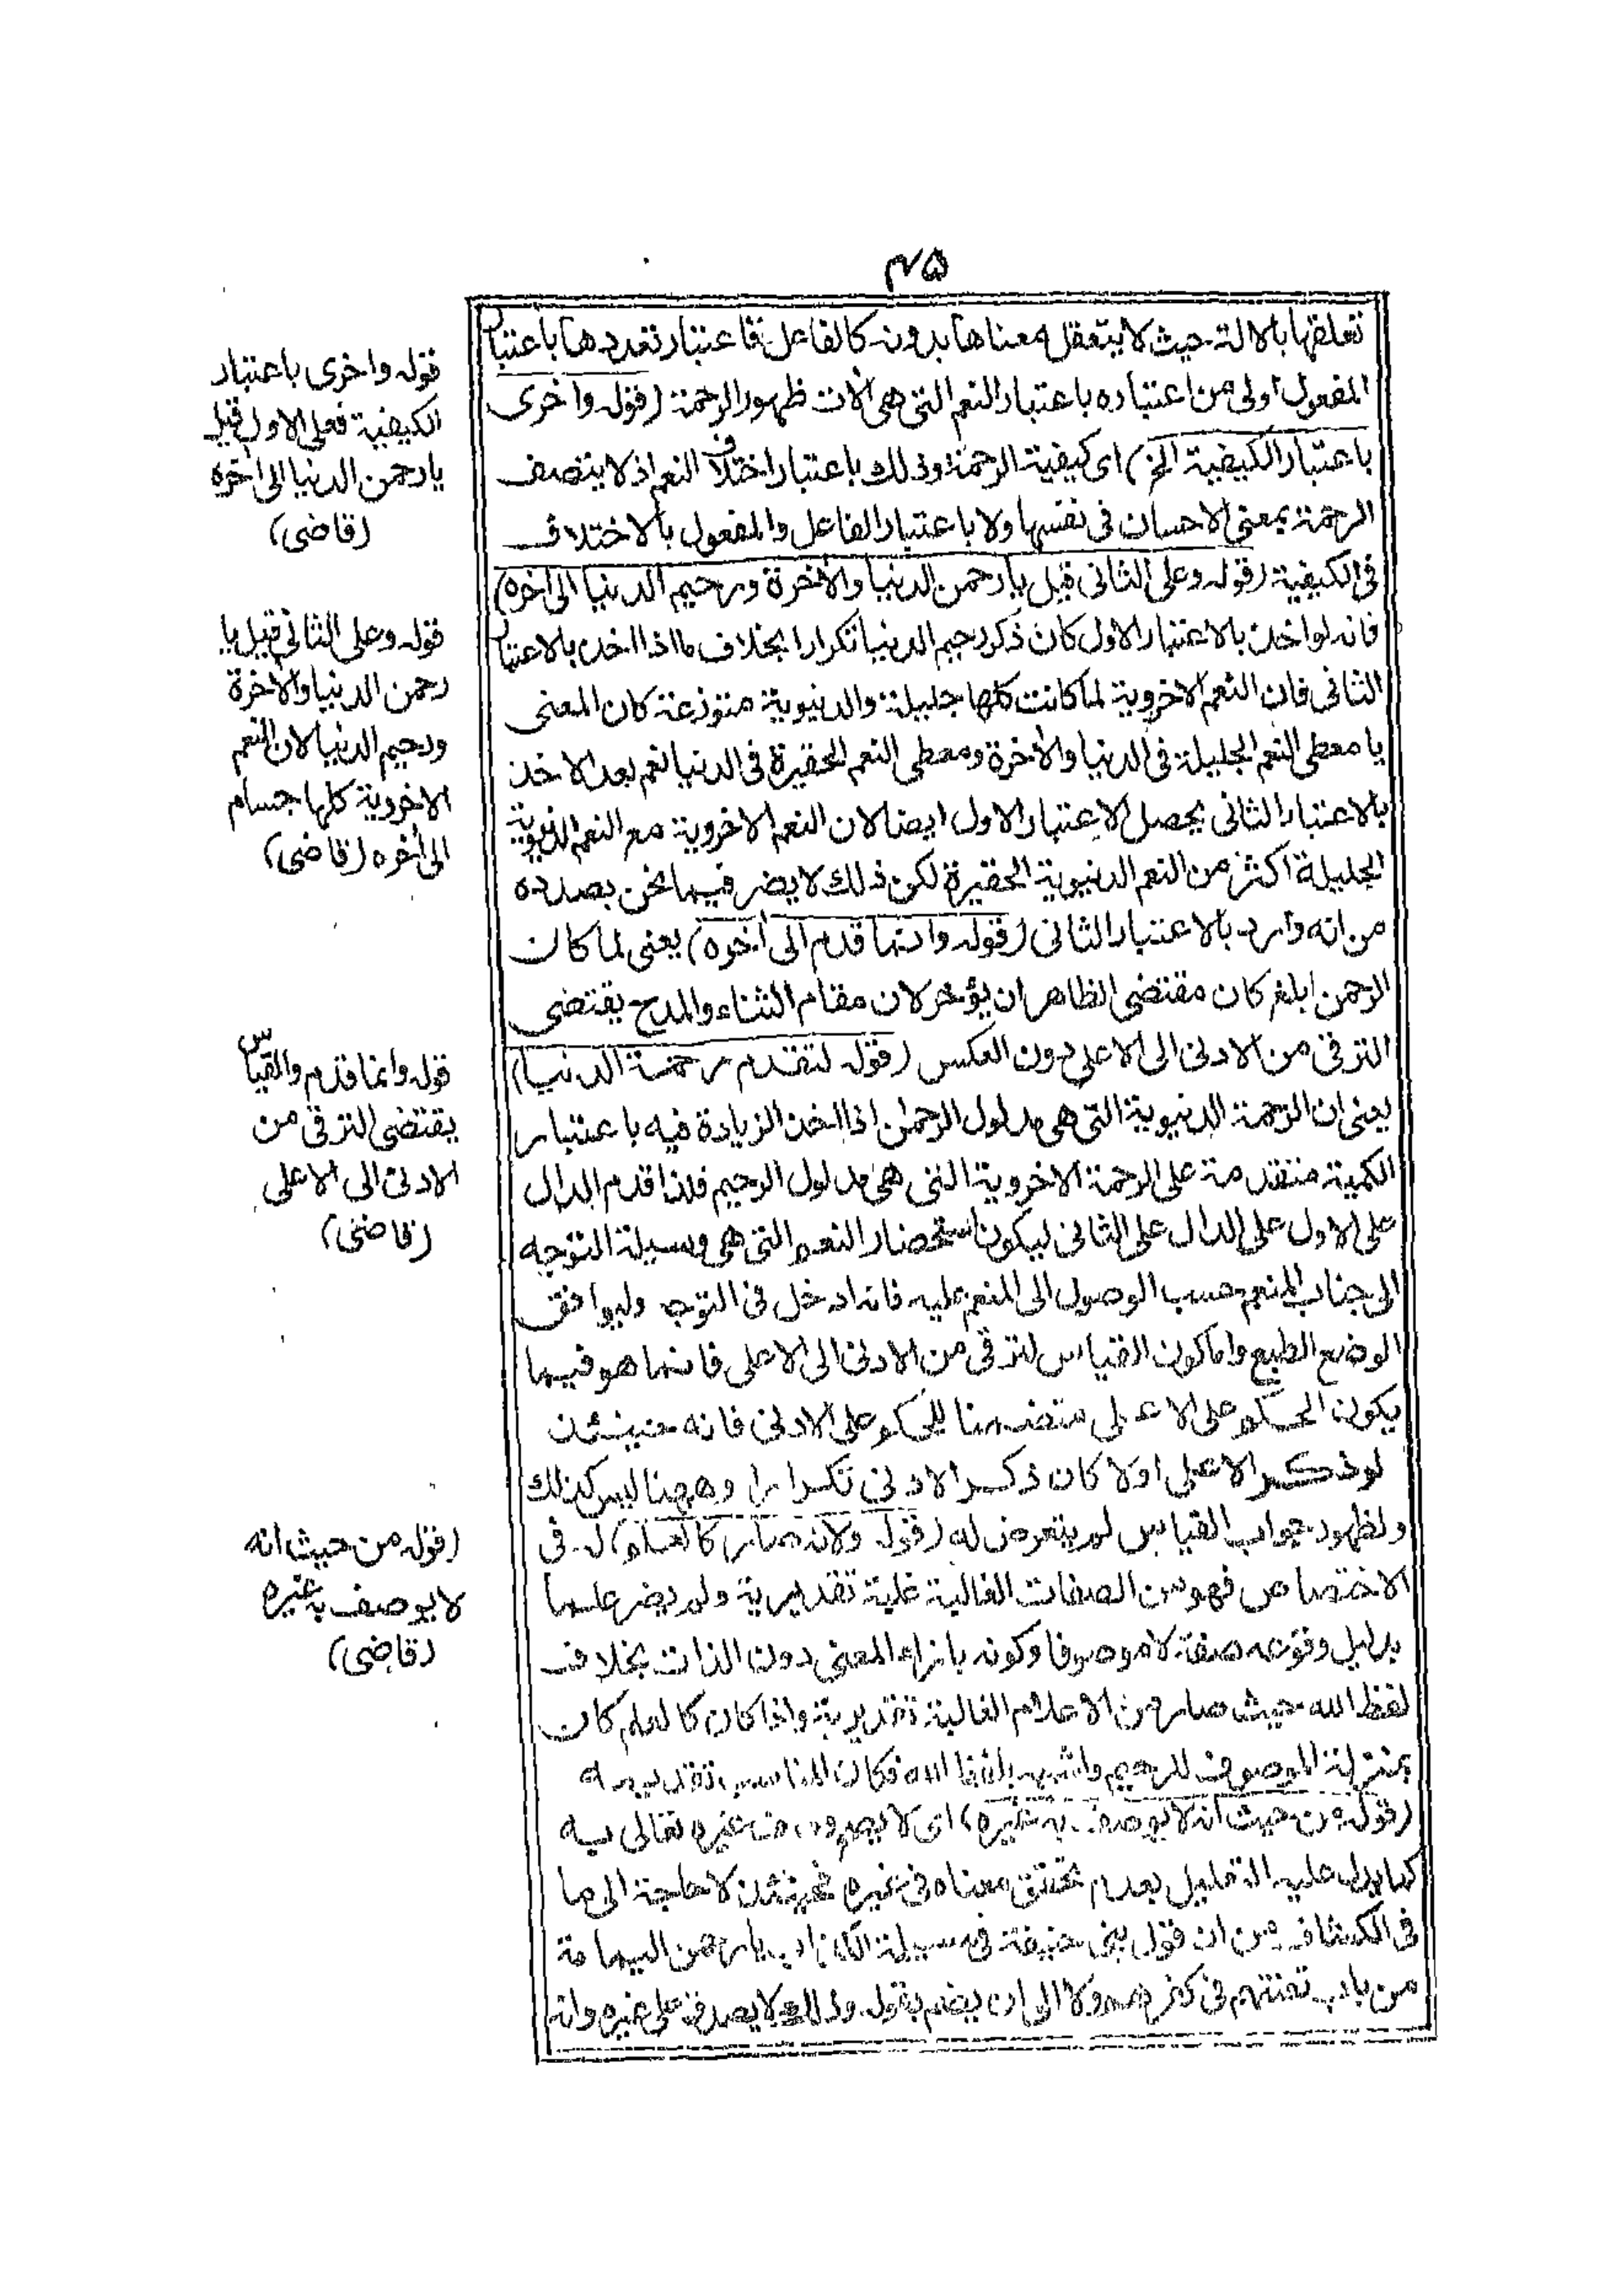 ۴۵
تعلقها بالالة حيث لا يتعقل معناها بدونه كالفاعل فاعتبار تعددها باعتبار
المفعول اولى من اعتباره باعتبار النعم التى هى الات ظهور الرحمة (قوله واخرى
باعتبار الكيفية الخ) اى كيفية الرحمة وذلك باعتبار اختلاف النعم اذ لا يتصف
الرحمة بمعنى الاحسان فى نفسها ولا باعتبار الفاعل والمفعول بالاختلاف
فى الكيفية (قوله وعلى الثانى قيل يا رحمن الدنيا والاخرة ورحيم الدنيا الى اخره)
فانه لو اخذ بالاعتبار الاول كان ذكر رحيم الدنيا تكرارا بخلاف ما اذا اخذ بالاعتبار
الثانى فان النعم الاخروية لما كانت كلها جليلة والدنيوية متوزعة كان المعنى
يا معطى النعم الجليلة فى الدنيا والاخرة ومعطى النعم الحقيرة فى الدنيا نعم بعد الاخذ
بالاعتبار الثانى يحصل الاعتبار الاول ايضا لان النعم الاخروية مع النعم الدنيوية
الجليلة اكثر من النعم الدنيوية الحقيرة لكن ذلك لا يضر فيما نحن بصدده
من انه وارد بالاعتبار الثانى (قوله وانما قدم الى اخره) يعنى لما كان
الرحمن ابلغ كان مقتضى الظاهر ان يؤخر لان مقام الثناء والمدح يقتضى
الترقى من الادنى الى الاعلى دون العكس (قوله لتقدم رحمة الدنيا)
يعنى ان الرحمة الدنيوية التى هى مدلول الرحمن اذا اخذ الزيادة فيه باعتبار
الكمية متقدمة على الرحمة الاخروية التى هى مدلول الرحيم فلذا قدم الدال
على الاول على الدال على الثانى ليكون استحضار النعم التى هى وسيلة التوجه
الى جناب المنعم حسب الوصول الى المنعم عليه فانه ادخل فى التوجه وليوافق
الوضع الطبع واما كون القياس لترقى من الادنى الى الاعلى فانما هو فيما
يكون الحكم على الاعلى متضمنا للحكم على الادنى فانه حينئذ
لو ذكر الاعلى اولا كان ذكر الادنى تكرارا وههنا ليس كذلك
ولظهور جواب القياس لم يتعرض له (قوله ولانه صار كالعلم) له فى
الاختصاص فهو من الصفات الغالبة غلبة تقديرية ولم يصر علما
بدليل وقوعه صفة لا موصوفا وكونه بازاء المعنى دون الذات بخلاف
لفظ الله حيث صار من الاعلام الغالبة تقديرية واذا كان كالعلم كان
بمنزلة الموصوف للرحيم واشبه بلفظ الله فكان المناسب تقديمه
(قوله من حيث انه لا يوصف به غيره) اى لا يوصف غيره تعالى به
كما يدل عليه التعليل بعدم تحقق معناه فى غيره فحينئذ لا حاجة الى ما
فى الكشاف من ان قول بنى حنيفة فى مسيلمة الكذاب يا رحمن اليمامة
من باب تعنتهم فى كفرهم ولا الى ان يضم بقوله وذلك لا يصدق على غيره وانه
قوله واخرى باعتبار
الكيفية فعلى الاول قيل
يا رحمن الدنيا الى اخره
(قاضى)
قوله وعلى الثانى قيل يا
رحمن الدنيا والاخرة
ورحيم الدنيا لان النعم
الاخروية كلها جسام
الى اخره (قاضى)
قوله وانما قدم والقياس
يقتضى الترقى من
الادنى الى الاعلى
(قاضى)
(قوله من حيث انه
لا يوصف به غيره
(قاضى)